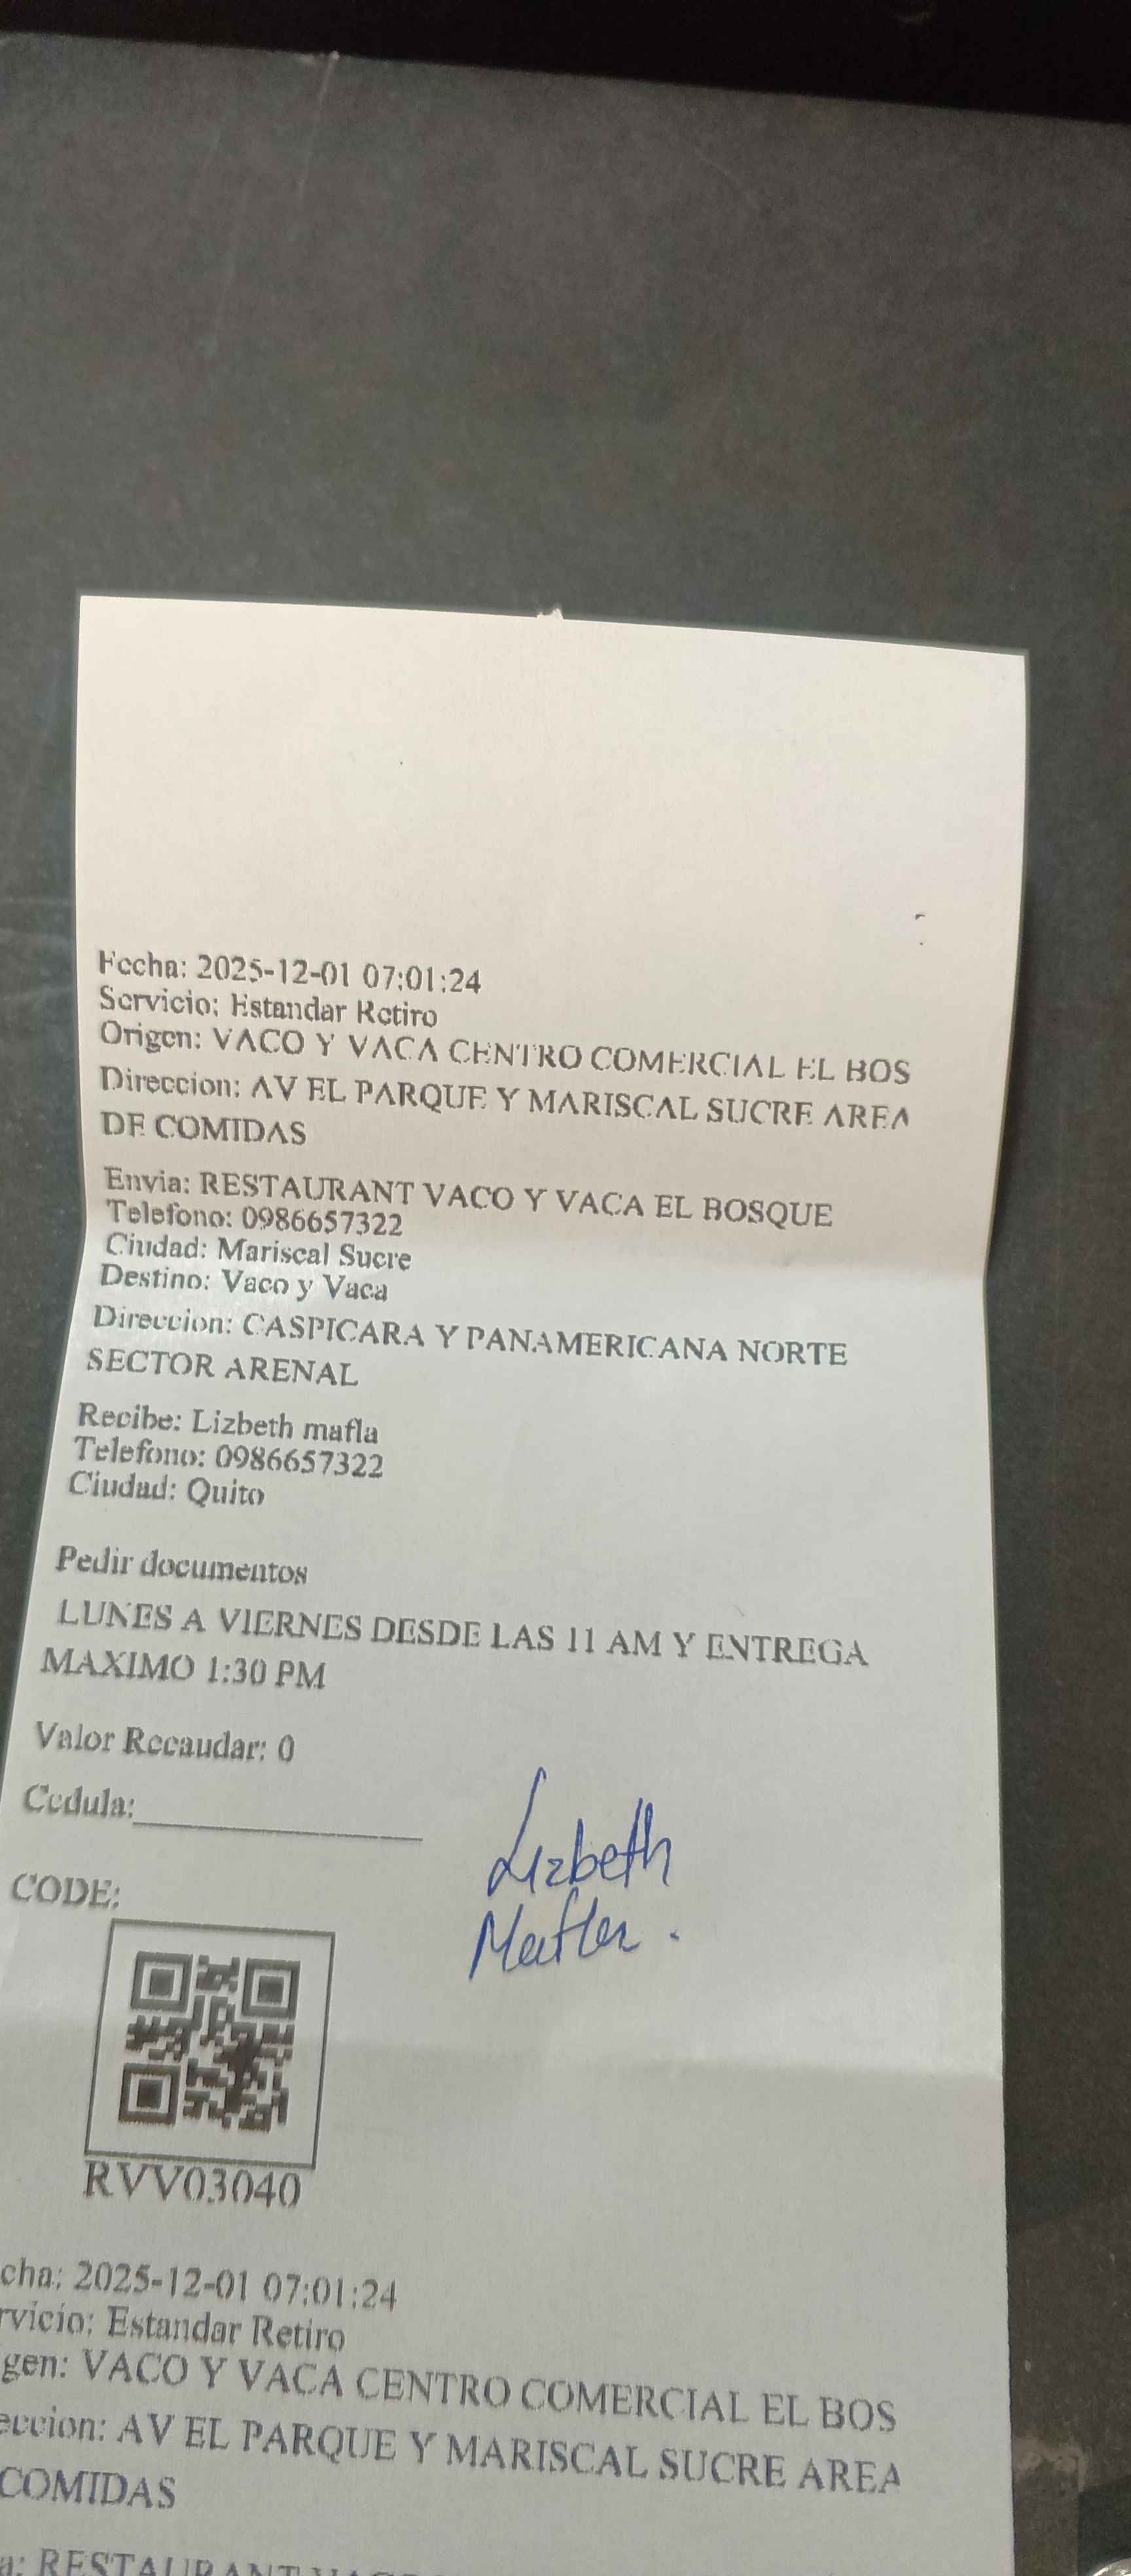 Fecha: 2025-12-01 07:01:24
Servicio: Estandar Retiro
Origen: VACO Y VACA CENTRO COMERCIAL EL BOS
Direccion: AV EL PARQUE Y MARISCAL SUCRE AREA
DE COMIDAS
Envia: RESTAURANT VACO Y VACA EL BOSQUE
Telefono: 0986657322
Ciudad: Mariscal Sucre
Destino: Vaco y Vaca
Direccion: CASPICARA Y PANAMERICANA NORTE
SECTOR ARENAL
Recibe: Lizbeth mafla
Telefono: 0986657322
Ciudad: Quito
Pedir documentos
LUNES A VIERNES DESDE LAS 11 AM Y ENTREGA
MAXIMO 1:30 PM
Valor Recaudar: 0
Cedula:
Lizbeth
Mafla.
CODE:
RVV03040
cha: 2025-12-01 07:01:24
rvicio: Estandar Retiro
gen: VACO Y VACA CENTRO COMERCIAL EL BOS
eccion: AV EL PARQUE Y MARISCAL SUCRE AREA
COMIDAS
a: RESTAURANT